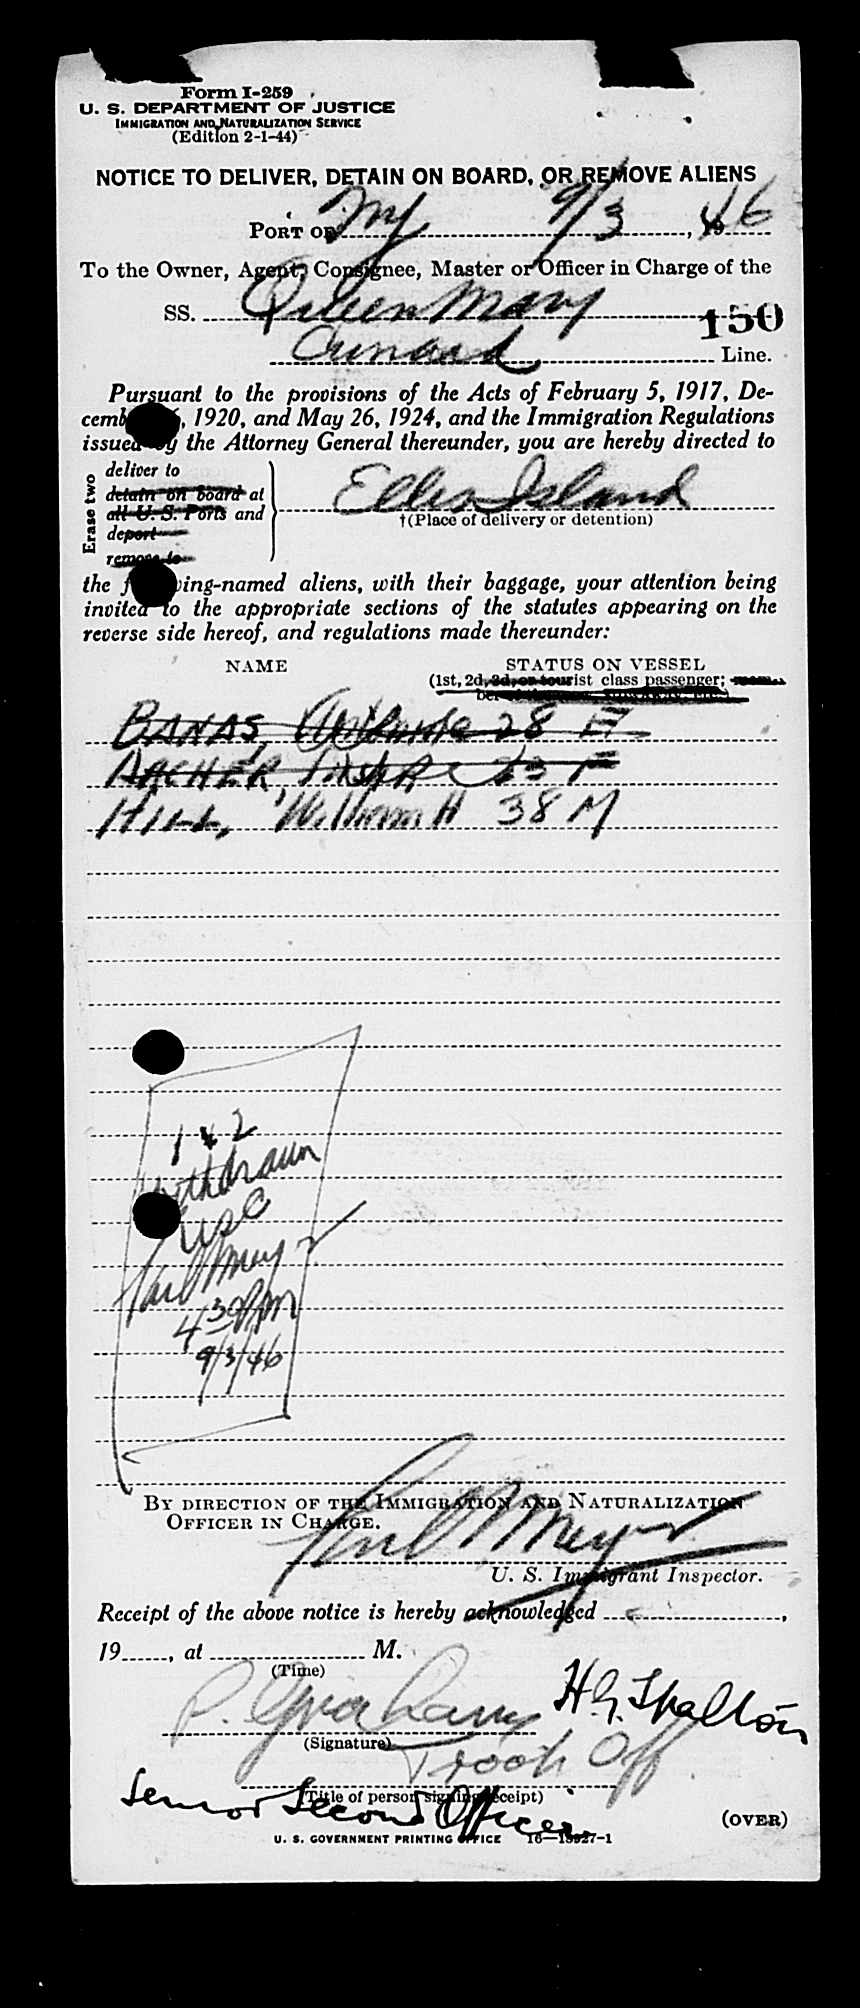 Form I-259
U. S. DEPARTMENT OF JUSTICE
IMMIGRATION AND NATURALIZATION SERVICE
(Edition 2-1-44)
NOTICE TO DELIVER, DETAIN ON BOARD, OR REMOVE ALIENS
PORT OF NY 9/3, 1946
To the Owner, Agent, Consignee, Master or Officer in Charge of the
SS. Queen Mary 150
Cunard Line.
Pursuant to the provisions of the Acts of February 5, 1917, De-
cember 26, 1920, and May 26, 1924, and the Immigration Regulations
issued by the Attorney General thereunder, you are hereby directed to
Erase two
deliver to
detain on board at
all U. S. Ports and
deport
remove to
Ellis Island
†(Place of delivery or detention)
the following-named aliens, with their baggage, your attention being
invited to the appropriate sections of the statutes appearing on the
reverse side hereof, and regulations made thereunder:
NAME STATUS ON VESSEL
(1st, 2d, 3d, or tourist class passenger;
BANAS, 28 F
ARCHER, 23 F
HILL, William H 38 M
1 & 2
Withdrawn
USC
Karl Meyer
4 30 PM
9/3/46
BY DIRECTION OF THE IMMIGRATION AND NATURALIZATION
OFFICER IN CHARGE.
Karl Meyer
U. S. Immigrant Inspector.
Receipt of the above notice is hereby acknowledged ,
19 , at M.
(Time)
P. Graham H. G. Skelton
(Signature)
Troop Off
(Title of person signing receipt)
Senior Second Officer
(OVER)
U. S. GOVERNMENT PRINTING OFFICE 16—13927-1